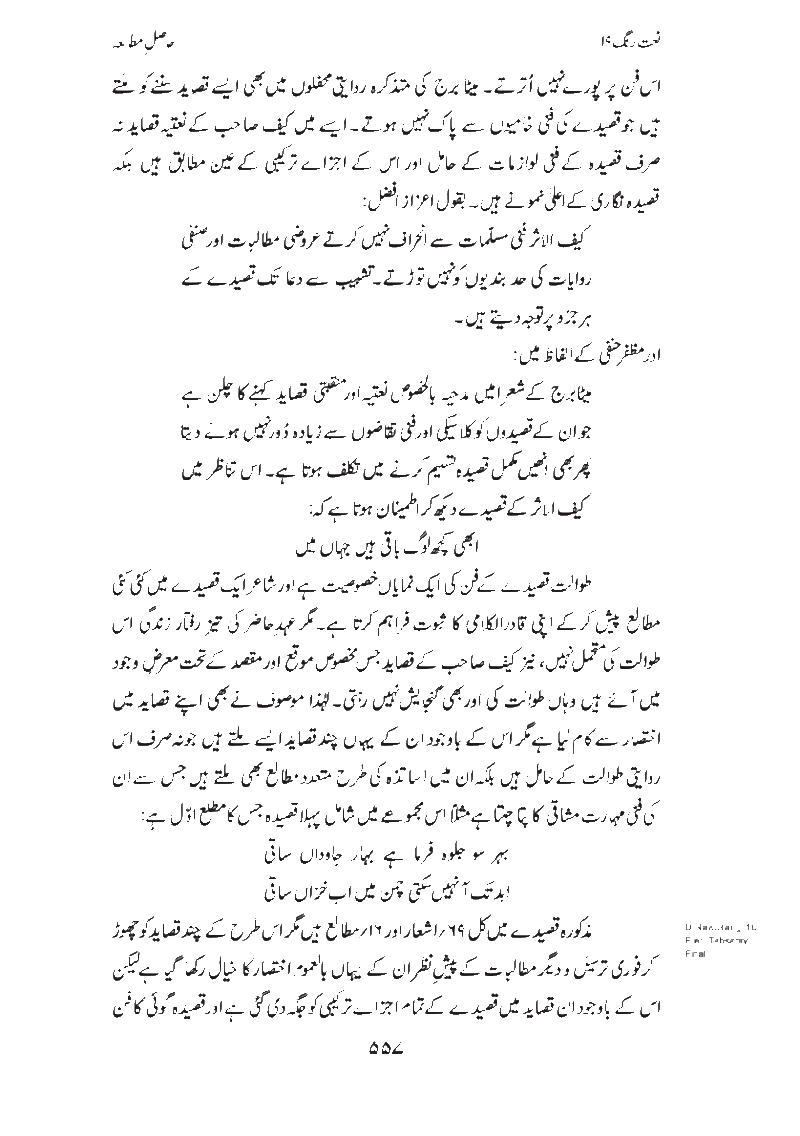 نعت رنگ ۱۹
حاصلِ مطالعہ
اس فن پر پورے نہیں اُترتے۔ مٹیا برج کی متذکرہ روایتی محفلوں میں بھی ایسے قصاید سننے کو ملتے
ہیں جو قصیدے کی فنی خامیوں سے پاک نہیں ہوتے۔ ایسے میں کیف صاحب کے نعتیہ قصاید نہ
صرف قصیدہ کے فنی لوازمات کے حامل اور اس کے اجزاے ترکیبی کے عین مطابق ہیں بلکہ
قصیدہ نگاری کے اعلیٰ نمونے ہیں۔ بقول اعزاز افضل:
کیف الاثر فنی مسلمات سے انحراف نہیں کرتے عروضی مطالبات اور صنفی
روایات کی حد بندیوں کو نہیں توڑتے۔ تشبیب سے دعا تک قصیدے کے
ہر جزو پر توجہ دیتے ہیں۔
اور مظفر حنفی کے الفاظ میں:
مٹیا برج کے شعرا میں مدحیہ بالخصوص نعتیہ اور منقبتی قصاید کہنے کا چلن ہے
جو ان کے قصیدوں کو کلاسیکی اور فنی تقاضوں سے زیادہ دُور نہیں ہونے دیتا
پھر بھی انھیں مکمل قصیدہ تسلیم کرنے میں تکلف ہوتا ہے۔ اس تناظر میں
کیف الاثر کے قصیدے دیکھ کر اطمینان ہوتا ہے کہ:
ابھی کچھ لوگ باقی ہیں جہاں میں
طوالت قصیدے کے فن کی ایک نمایاں خصوصیت ہے اور شاعر ایک قصیدے میں کئی کئی
مطالع پیش کر کے اپنی قادر الکلامی کا ثبوت فراہم کرتا ہے۔ مگر عہدِ حاضر کی تیز رفتار زندگی اس
طوالت کی متحمل نہیں، نیز کیف صاحب کے قصاید جس مخصوص موقع اور مقصد کے تحت معرضِ وجود
میں آئے ہیں وہاں طوالت کی اور بھی گنجایش نہیں رہتی۔ لہٰذا موصوف نے بھی اپنے قصاید میں
اختصار سے کام لیا ہے مگر اس کے باوجود ان کے یہاں چند قصاید ایسے ملتے ہیں جو نہ صرف اس
روایتی طوالت کے حامل ہیں بلکہ ان میں اساتذہ کی طرح متعدد مطالع بھی ملتے ہیں جس سے ان
کی فنی مہارت مشاقی کا پتا چلتا ہے مثلاً اس مجموعے میں شامل پہلا قصیدہ جس کا مطلع اوّل ہے:
بہر سو جلوہ فرما ہے بہار جاوداں ساقی
ابد تک آ نہیں سکتی چمن میں اب خزاں ساقی
مذکورہ قصیدے میں کل ۶۹/اشعار اور ۱۶/مطالع ہیں مگر اس طرح کے چند قصاید کو چھوڑ
کر فوری ترسیل و دیگر مطالبات کے پیشِ نظر ان کے یہاں بالعموم اختصار کا خیال رکھا گیا ہے لیکن
اس کے باوجود ان قصاید میں قصیدے کے تمام اجزاے ترکیبی کو جگہ دی گئی ہے اور قصیدہ گوئی کا فن
۵۵۷
Final